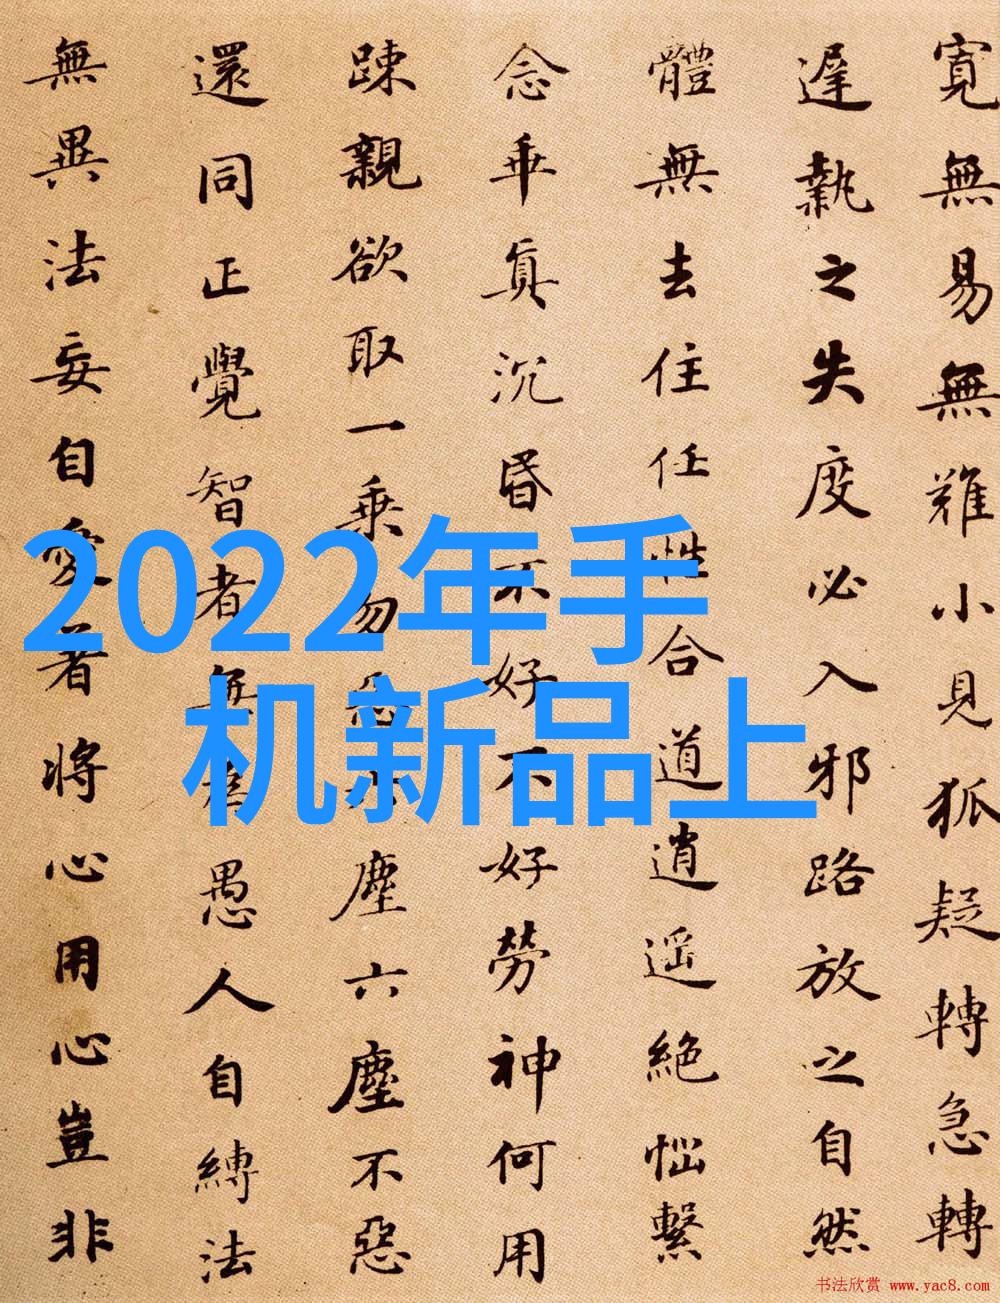 寬無易無難小見狐疑轉急轉
遲執之失度必入邪路放之自然
體無去住任性合道逍遥絕惱繫
念乖真沉昏不好不好勞神何用
踈親欲取一乘勿惡六塵六塵不惡
還同正覺智者無為愚人自縛法
無異法妄自愛著將心用心豈非
2022年手
机新品上
书法欣赏 www.yac8.com